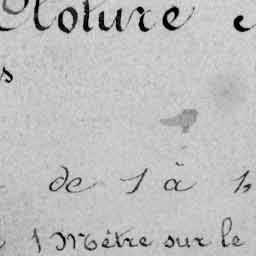 Cloture
s
de 1 à 1
1 Mètre sur le